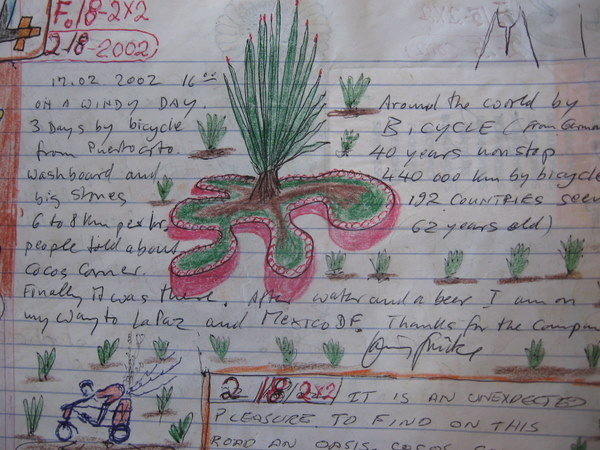 F. 18-2x2
2-18-2002
17.02 2002 16 00
ON A WINDY DAY.
3 Days by bicycle
from Puertocito.
washboard and
big stones
6 to 8 km per hr,
people told about
Cocos Corner.
Around the world by
BICYCLE (from German
40 years nonstop
440 000 km by bicycle
192 COUNTRIES seen
62 years old)
Finally it was there. After water and a beer I am on
my way to LaPaz and MEXICO DF. Thanks for the Compan
2/18/2x2 IT IS AN UNEXPECTED
PLEASURE TO FIND ON THIS
ROAD AN OASIS. COCOS CO